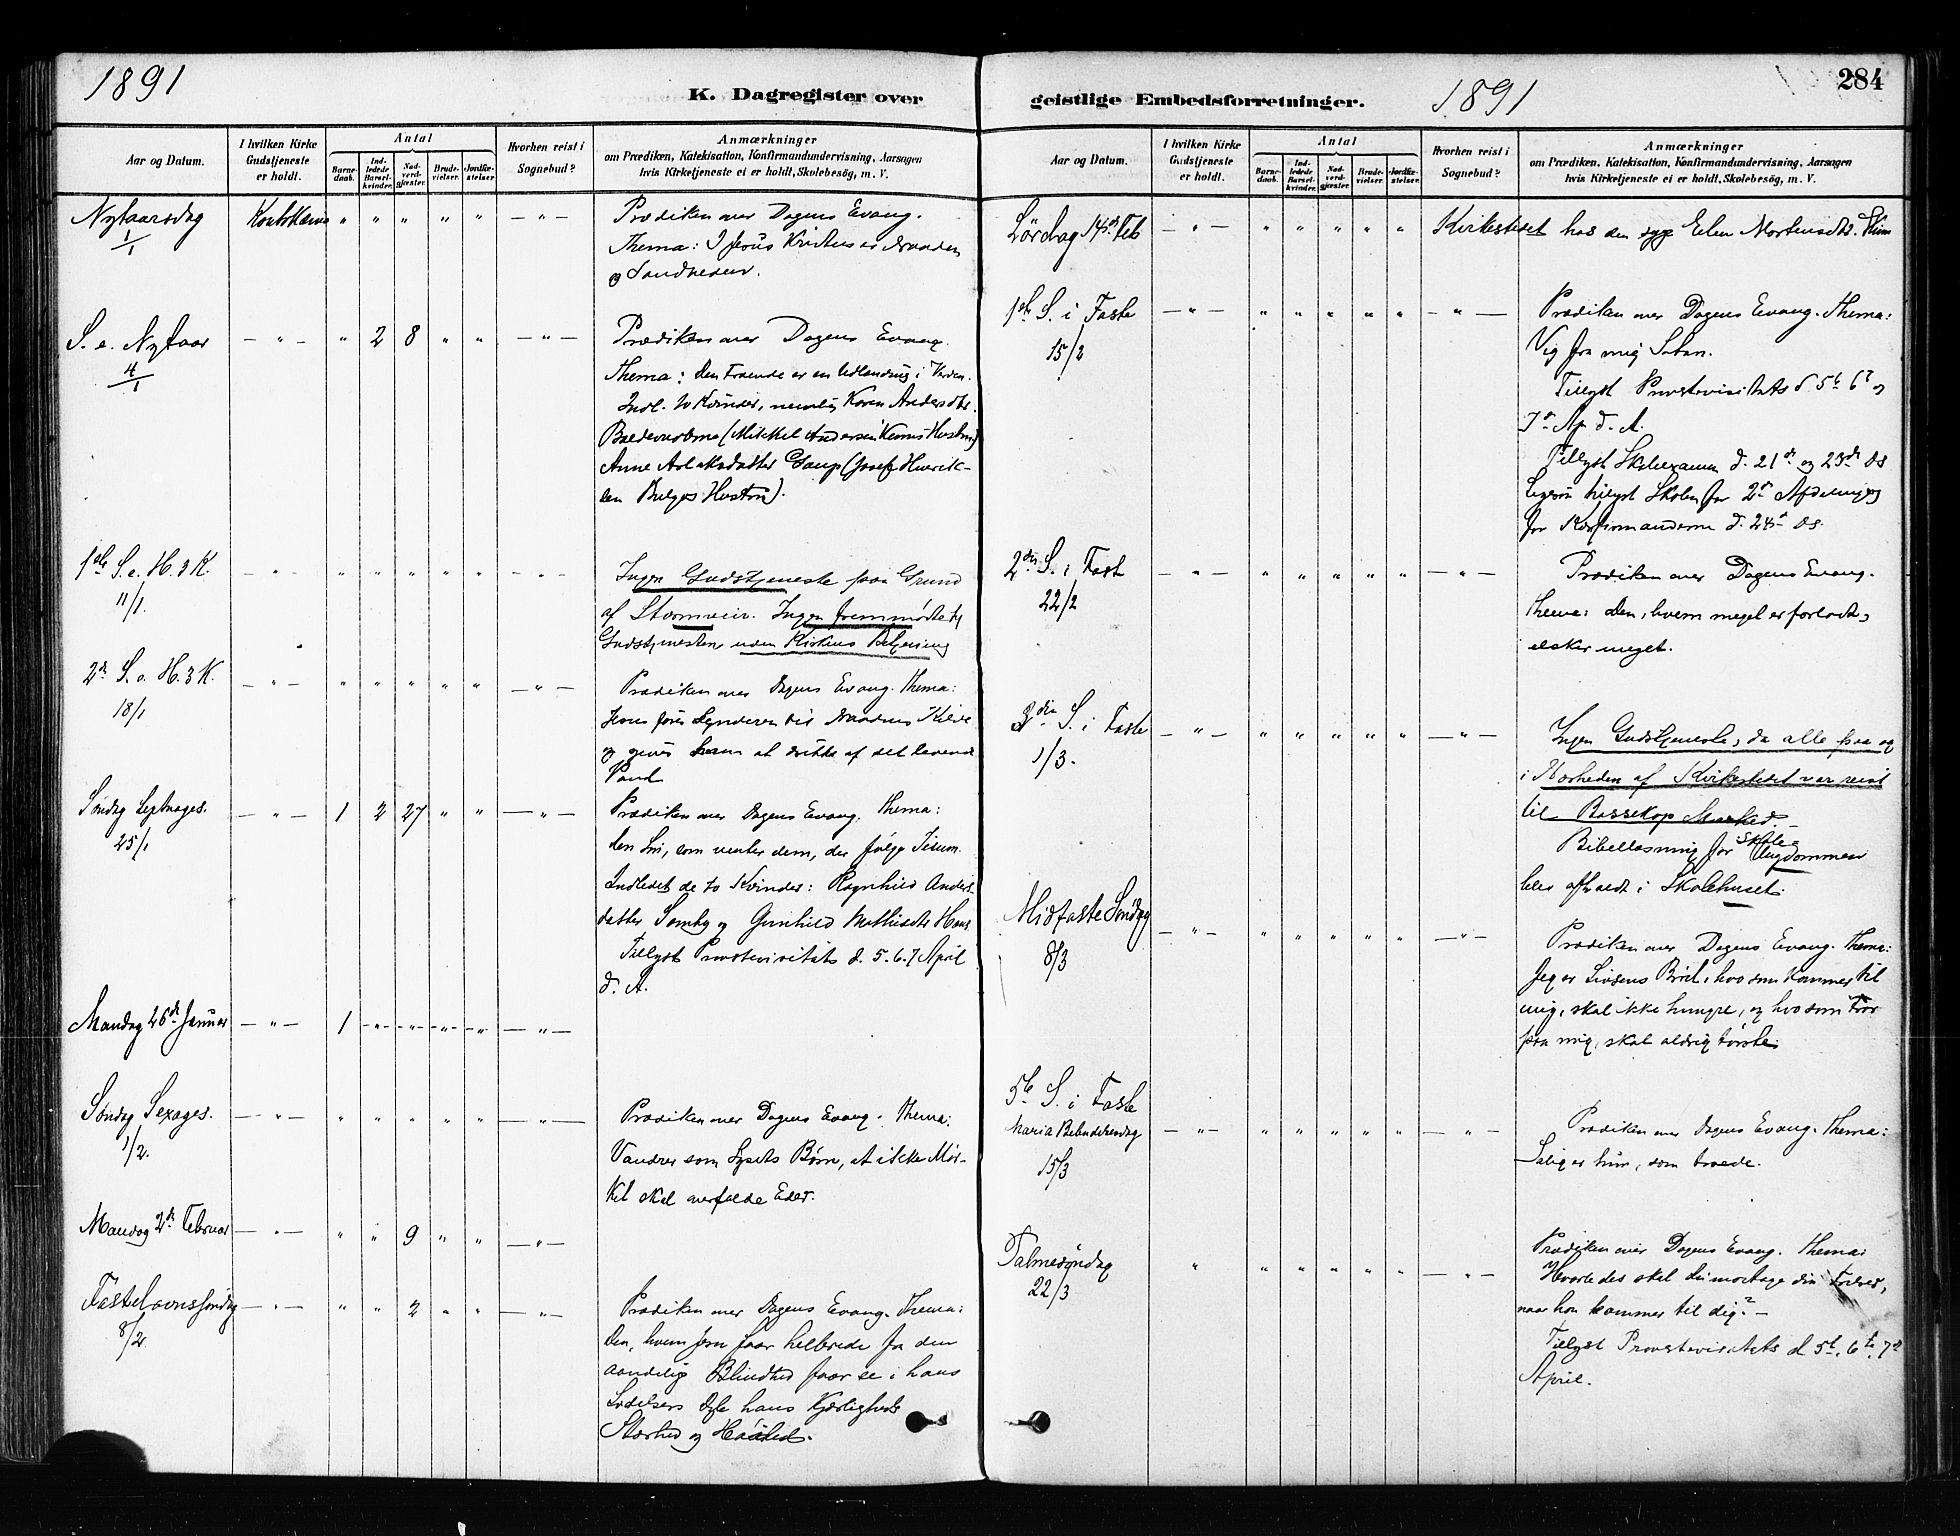 1891
K. Dagregister over
Aar og Datum.
I hvilken Kirke Gudstjeneste er holdt.
Antal
Barnedaab.
Indledede Barselkvinder.
Nadverdgjester.
Brudevielser.
Jordfæstelser.
Hvorhen reist i Sognebud?
Anmærkninger
om Prædiken, Katekisation, Konfirmandundervisning, Aarsagen
hvis Kirketjeneste ei er holdt, Skolebesög, m. V.
Nytaarsdag 1/1 Koutokæino " " " " " — " — Prædiken over Dagens Evang.
Thema: I Jesus Kristus er Naaden
og Sandheden.
S. e. Nytaar 4/1 — " — " 2 8 " " — " — Prædiken over Dagens Evang.
Thema: Den Troende er en Udlænding i Verden.
Indl. to Kvinder, nemlig Karen Andersdtr.
(Mikkel Andersen Kemis Hustru)
Anne Aslaksdatter Gaup (Josef Henrik-
sen Hustru).
1ste S. e. H. 3 K. 11/1. — " — " " " " " — " — Ingen Gudstjeneste paa Grund
af Stormveir. Ingen fremmødte til
Gudstjenesten uden Kirkens Betjening
2den S. e. H. 3 K. 18/1 — " — " " " " " — " — Prædiken over Dagens Evang. Thema:
Jesus fører Synderen til Naadens Kilde
og giver ham at drikke af det levende
Vand
Søndag Septuages. 25/1 — " — 1 2 27 " " — " — Prædiken over Dagens Evang. Thema:
den Løn, som venter dem, der følge Jesum.
Indledet de to Kvinder: Ragnhild Anders-
datter Somby og Gunhild Mathisdtr
Tillyst Provstevisitats d. 5. 6. 7 April
d. A.
Mandag 26de Januar — " — 1 - " - - " - - " - - " - — " —
Søndag Sexages. 1/2. — " — " " " " " — " — Prædiken over Dagens Evang. Thema:
Vandrer som Lysets Børn, at ikke Mør-
ket skal overfalde Eder.
Mandag 2den Februar — " — " " 9 " " — " —
Fastelavnssøndag 8/2. — " — " " 2 " " " — Prædiken over Dagens Evang. Thema:
Den, hvem Jesu faar helbrede fra den
aandelig Blindhed faar se i hans
Lidelsers Dyb hans Kjærligheds
Storhed og

geistlige Embedsforretninger.
1891
284
Aar og Datum.
I hvilken Kirke Gudstjeneste er holdt.
Antal
Barnedaab.
Indledede Barselkvinder.
Nadverdgjester.
Brudevielser.
Jordfæstelser.
Hvorhen reist i Sognebud?
Anmærkninger
om Prædiken, Katekisation, Konfirmandundervisning, Aarsagen
hvis Kirketjeneste ei er holdt, Skolebesög, m. V.
Lördag 14de Feb — " — " " " " " Kirkestedet hos den syge Elen Mortensdtr.
1ste S. i Faste 15/2 — " — " " " " " — " — Prædiken over Dagens Evang. Thema:
Vig fra mig Satan.
Tillyst Provstevisitats d. 5te 6te og
7de Ap d. A.
Tillyst Skolexamen d. 21de og 23de ds
ligesaa tillyst Skolen for 2den Afdeling og
for Konfirmanderne d. 24de ds.
2den S. i Fast 22/2 — " — " " " " " — " — Prædiken over Dagens Evang.
Thema: Den, hvem meget er forladt,
elsker meget.
3die S. i Faste 1/3. — " — " " " " " — " — Ingen Gudstjeneste, da alle paa og
i Nærheden af Kirkestedet var reist
til Bossekop Marked.
Bibellæsning for Skole Ungdommen
blev afholdt i Skolehuset.
Midfaste Søndag 8/3 — " — " " " " " — " — Prædiken over Dagens Evang. Thema:
Jeg er Livsens Brød, hvo som kommer til
mig, skal ikke hungre, og hvo som tror
paa mig, skal aldrig tørste.
5te S. i Faste
Maria Bebudelsesdag 15/3 — " — " " " " " — " — Prædiken over Dagens Evang. Thema:
Salig er hun, som troede.
Palmesøndag 22/3 " " " " " " — " — Prædiken over Dagens Evang. Thema:
Hvorledes skal du modtage din Frelser,
naar han kommer til dig? —
Tillyst Provstevisitats d. 5te, 6te, 7de
April.